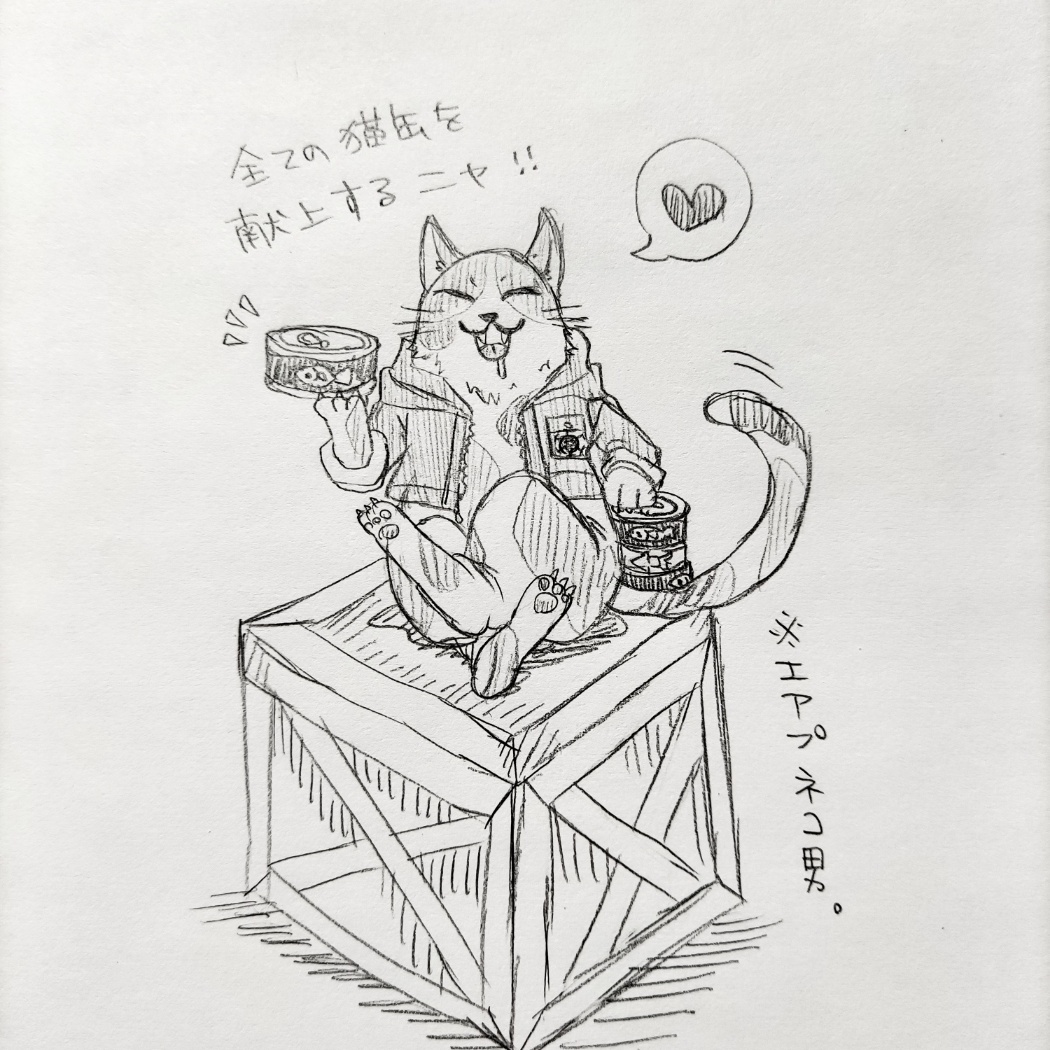 全ての猫缶を
献上するニャ!!
※エアプネコ男。